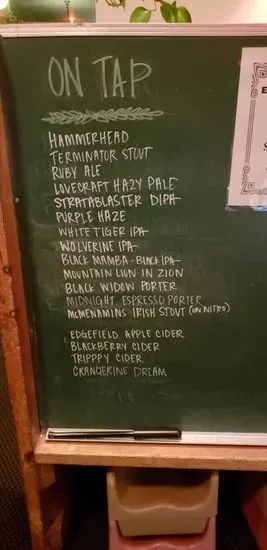 ON TAP
HAMMERHEAD
TERMINATOR STOUT
RUBY ALE
LOVECRAFT HAZY PALE
STRATABLASTER DIPA
PURPLE HAZE
WHITE TIGER IPA
WOLVERINE IPA
BLACK MAMBA-BLACK IPA
MOUNTAIN LION IN ZION
BLACK WIDOW PORTER
MIDNIGHT ESPRESSO PORTER
MCMENAMINS IRISH STOUT (ON NITRO)
EDGEFIELD APPLE CIDER
BLACKBERRY CIDER
TRIPPPY CIDER
CRANGERINE DREAM